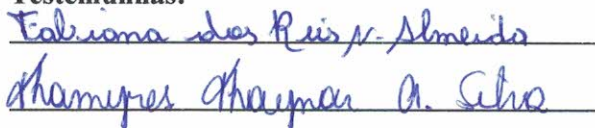 Testemunhas:
Fabiana dos Reis N. Almeida
Thamyres Thaynar A. Silva